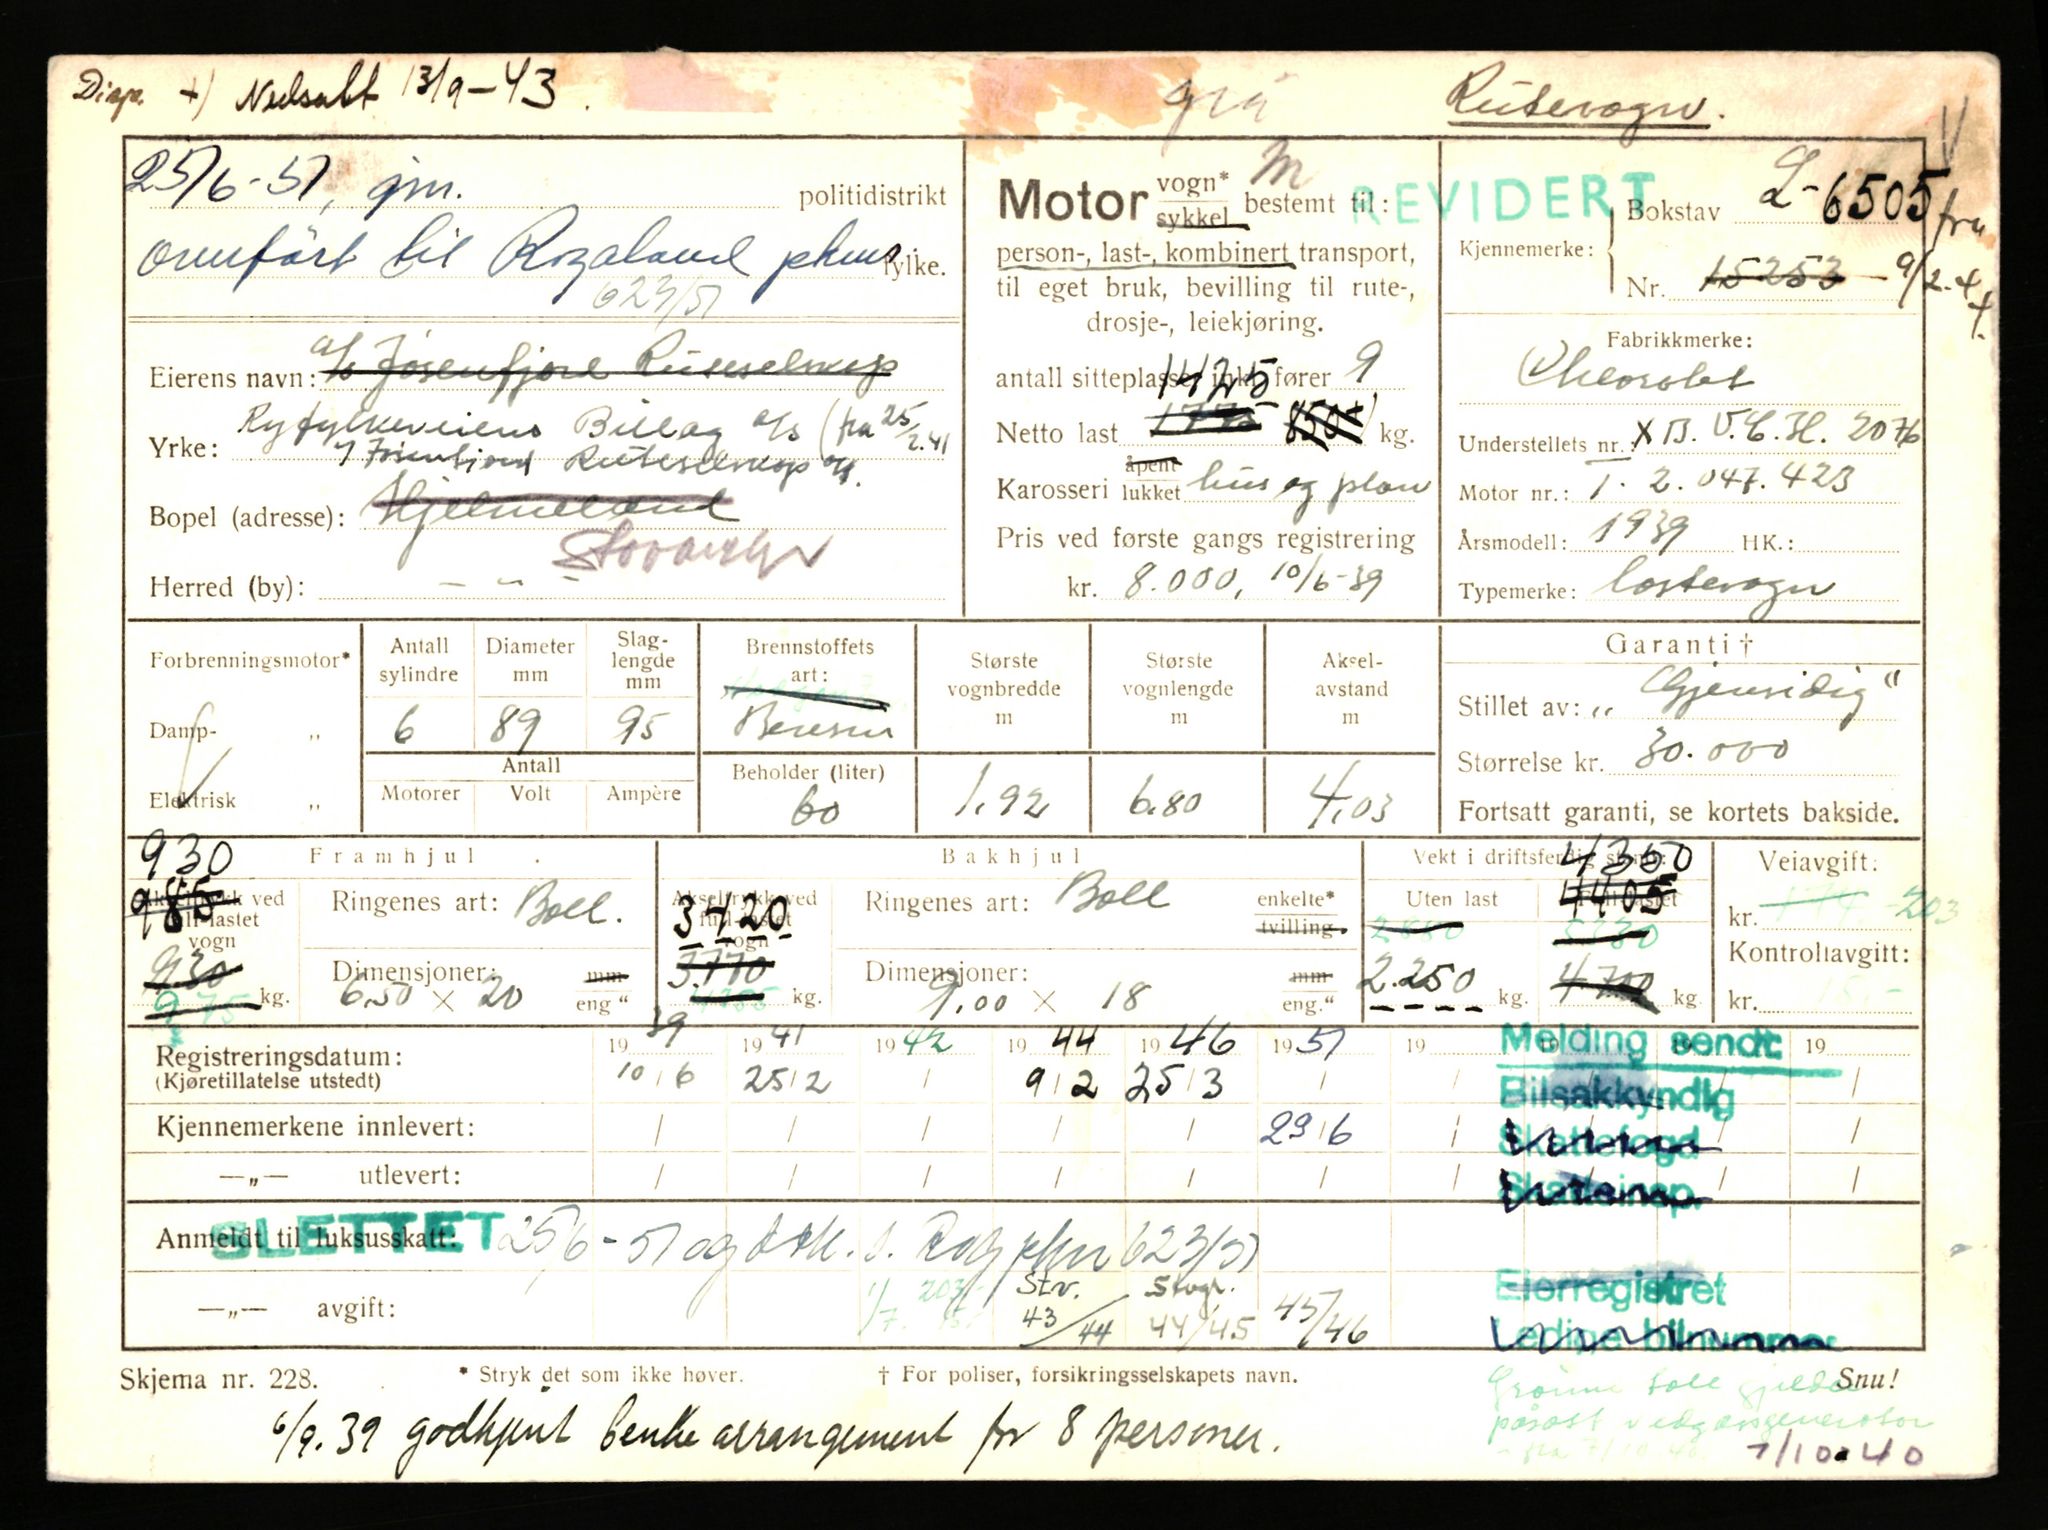 Disp. +) Nedsatt 13/9-43. grå Rutevogn.
25/6-51, gjn. politidistrikt
omført til Rogaland pkm fylke.
623/51
Eierens navn: a/s Jøsenfjord Ruteselskap
Ryfylkeveiens Billag a/s (fra 25/2.41
Yrke: Jøsenfjord Ruteselskap a/s.
Bopel (adresse): Hjelmeland
Stavanger
Herred (by): — „ —
Motor vogn* sykkel bestemt til:
M
person-, last-, kombinert transport,
til eget bruk, bevilling til rute-,
drosje-, leiekjøring.
antall sitteplasser inkl. fører 9
1425
Netto last 1775 850 kg.
Karosseri åpent lukket hus og plan
Pris ved første gangs registrering
kr. 8.000, 10/6-39
REVIDERT
Bokstav L-6505 fra
Kjennemerke:
Nr. 15253 - 9/2-44.
Fabrikkmerke:
Chevrolet
Understellets nr.: X B. V.C.H. 2076
Motor nr.: T. 2.047.423
Årsmodell: 1939 HK.:
Typemerke: lastevogn
Forbrenningsmotor*
Damp- „
Elektrisk „
Antall sylindre 6
Diameter mm 89
Slag-lengde mm 95
Antall
Motorer Volt Ampère
Brennstoffets art:
Bensin
Beholder (liter) 60
Største vognbredde m 1.92
Største vognlengde m 6.80
Aksel-avstand m 4.03
Garanti †
Stillet av: „Gjensidig“
Størrelse kr. 30.000
Fortsatt garanti, se kortets bakside.
Framhjul
930
985
Akseltrykk ved full-lastet vogn
930
975 kg.
Ringenes art: Boll.
Dimensjoner: mm eng “
6.50 × 20
Bakhjul
Akseltrykk ved full-lastet vogn
3420
3.770
kg.
Ringenes art: Boll enkelte* tvilling.
Dimensjoner: mm eng.“
9.00 × 18
Vekt i driftsferdig stand:
4350
Uten last Full-lastet
4405
2880 5130
2.250 kg. 4700 kg.
Veiavgift:
kr. 174 - 203
Kontrollavgift:
kr. 15.-
Registreringsdatum: 1939 1941 1942 1944 1946 1951 19 19 19 19
(Kjøretillatelse utstedt) 10/6 25/2 / 9/2 25/3 /
Kjennemerkene innlevert: 23/6
—„— utlevert:
Melding sendt:
Bilsakkyndig
Skattefogd
Skatteinsp.
Eierregistret
Ledige bilnummer
Anmeldt til luksusskatt:
SLETTET 25/6-51 og Rog pkm 623/51
—„— avgift: 1/7. 203 Stv. 43/44 Stvgr. 44/45 45/46
Skjema nr. 228. * Stryk det som ikke høver. † For poliser, forsikringsselskapets navn. Snu!
6/9.39 godkjent benkearrangement for 8 personer.
Grønne tall gjelder
påsatt vedgassgenerator
- fra 7/10-40.
7/10.40